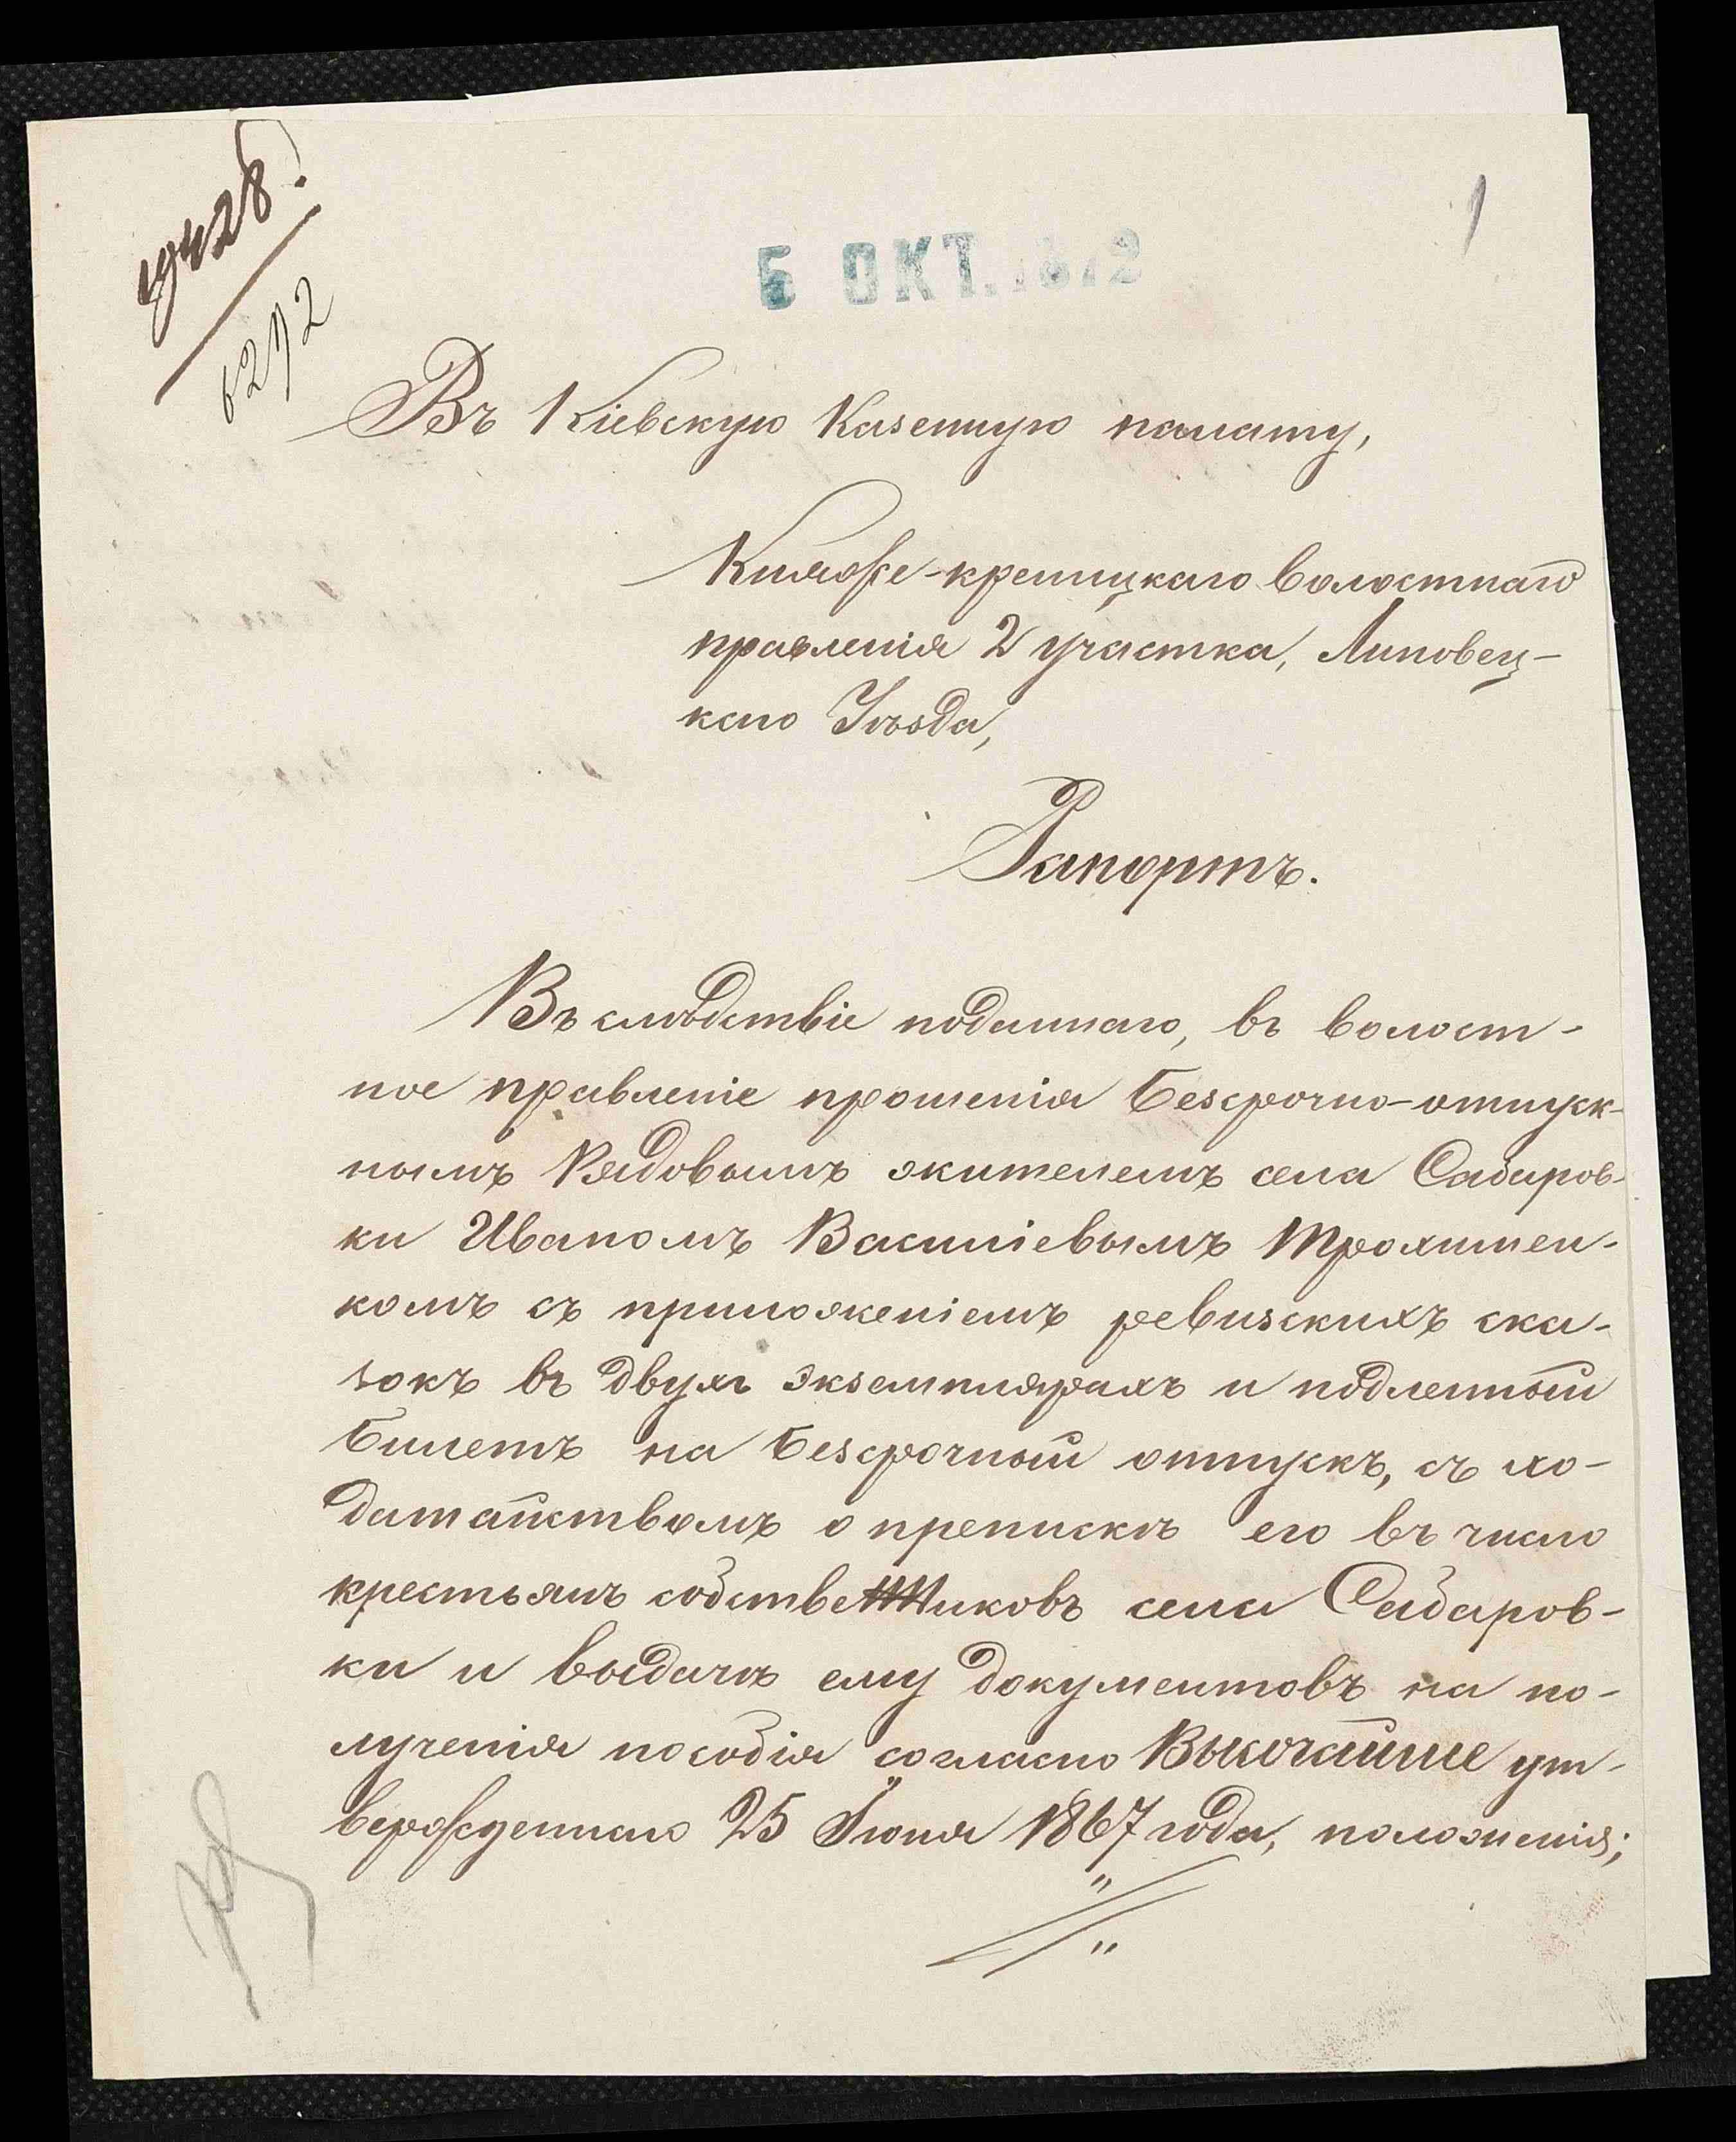 19428.
6272
1
5 ОКТ. 1872
Въ Кіевскую Казенную палату,
Княже-креницкаго волостнаго
правленія 2 участка, Липовец-
каго Уѣзда,
Рапортъ.
Въ слѣдствіе поданнаго, въ волост-
ное правленіе прошенія безсрочно-отпуск-
нымъ Рядовымъ жителемъ села Сабаров-
ки Иваномъ Василіевымъ Трохимен-
комъ съ приложеніемъ ревизскихъ ска-
зокъ въ двухъ экземплярахъ и подленный
билетъ на безсрочный отпускъ, съ хо-
датайствомъ о препискѣ его въ число
крестьянъ собственниковъ села Сабаров-
ки и выдачѣ ему документовъ на по-
лученія пособія согласно Высочайше ут-
вержденнаго 25 Іюня 1867 года, положенія;